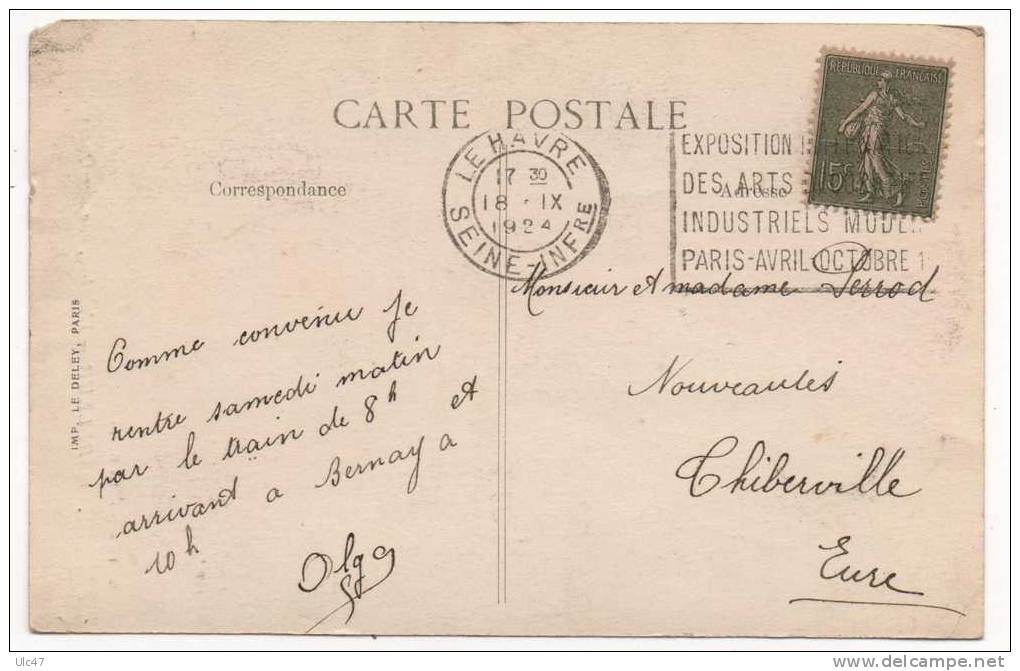 CARTE POSTALE
Correspondance
Adresse
REPUBLIQUE FRANÇAISE
15c
LE HAVRE
17 30
18 · IX
1924
SEINE-INFRE
EXPOSITION
DES ARTS
INDUSTRIELS MODER
PARIS-AVRIL-OCTOBRE 1
IMP. LE DELEY, PARIS
Comme convenu je
rentre samedi matin
par le train de 8h et
arrivant a Bernay a
10h
Olga
Monsieur et madame Serrod
Nouveautés
Thiberville
Eure
Ulc47
delcampe.net